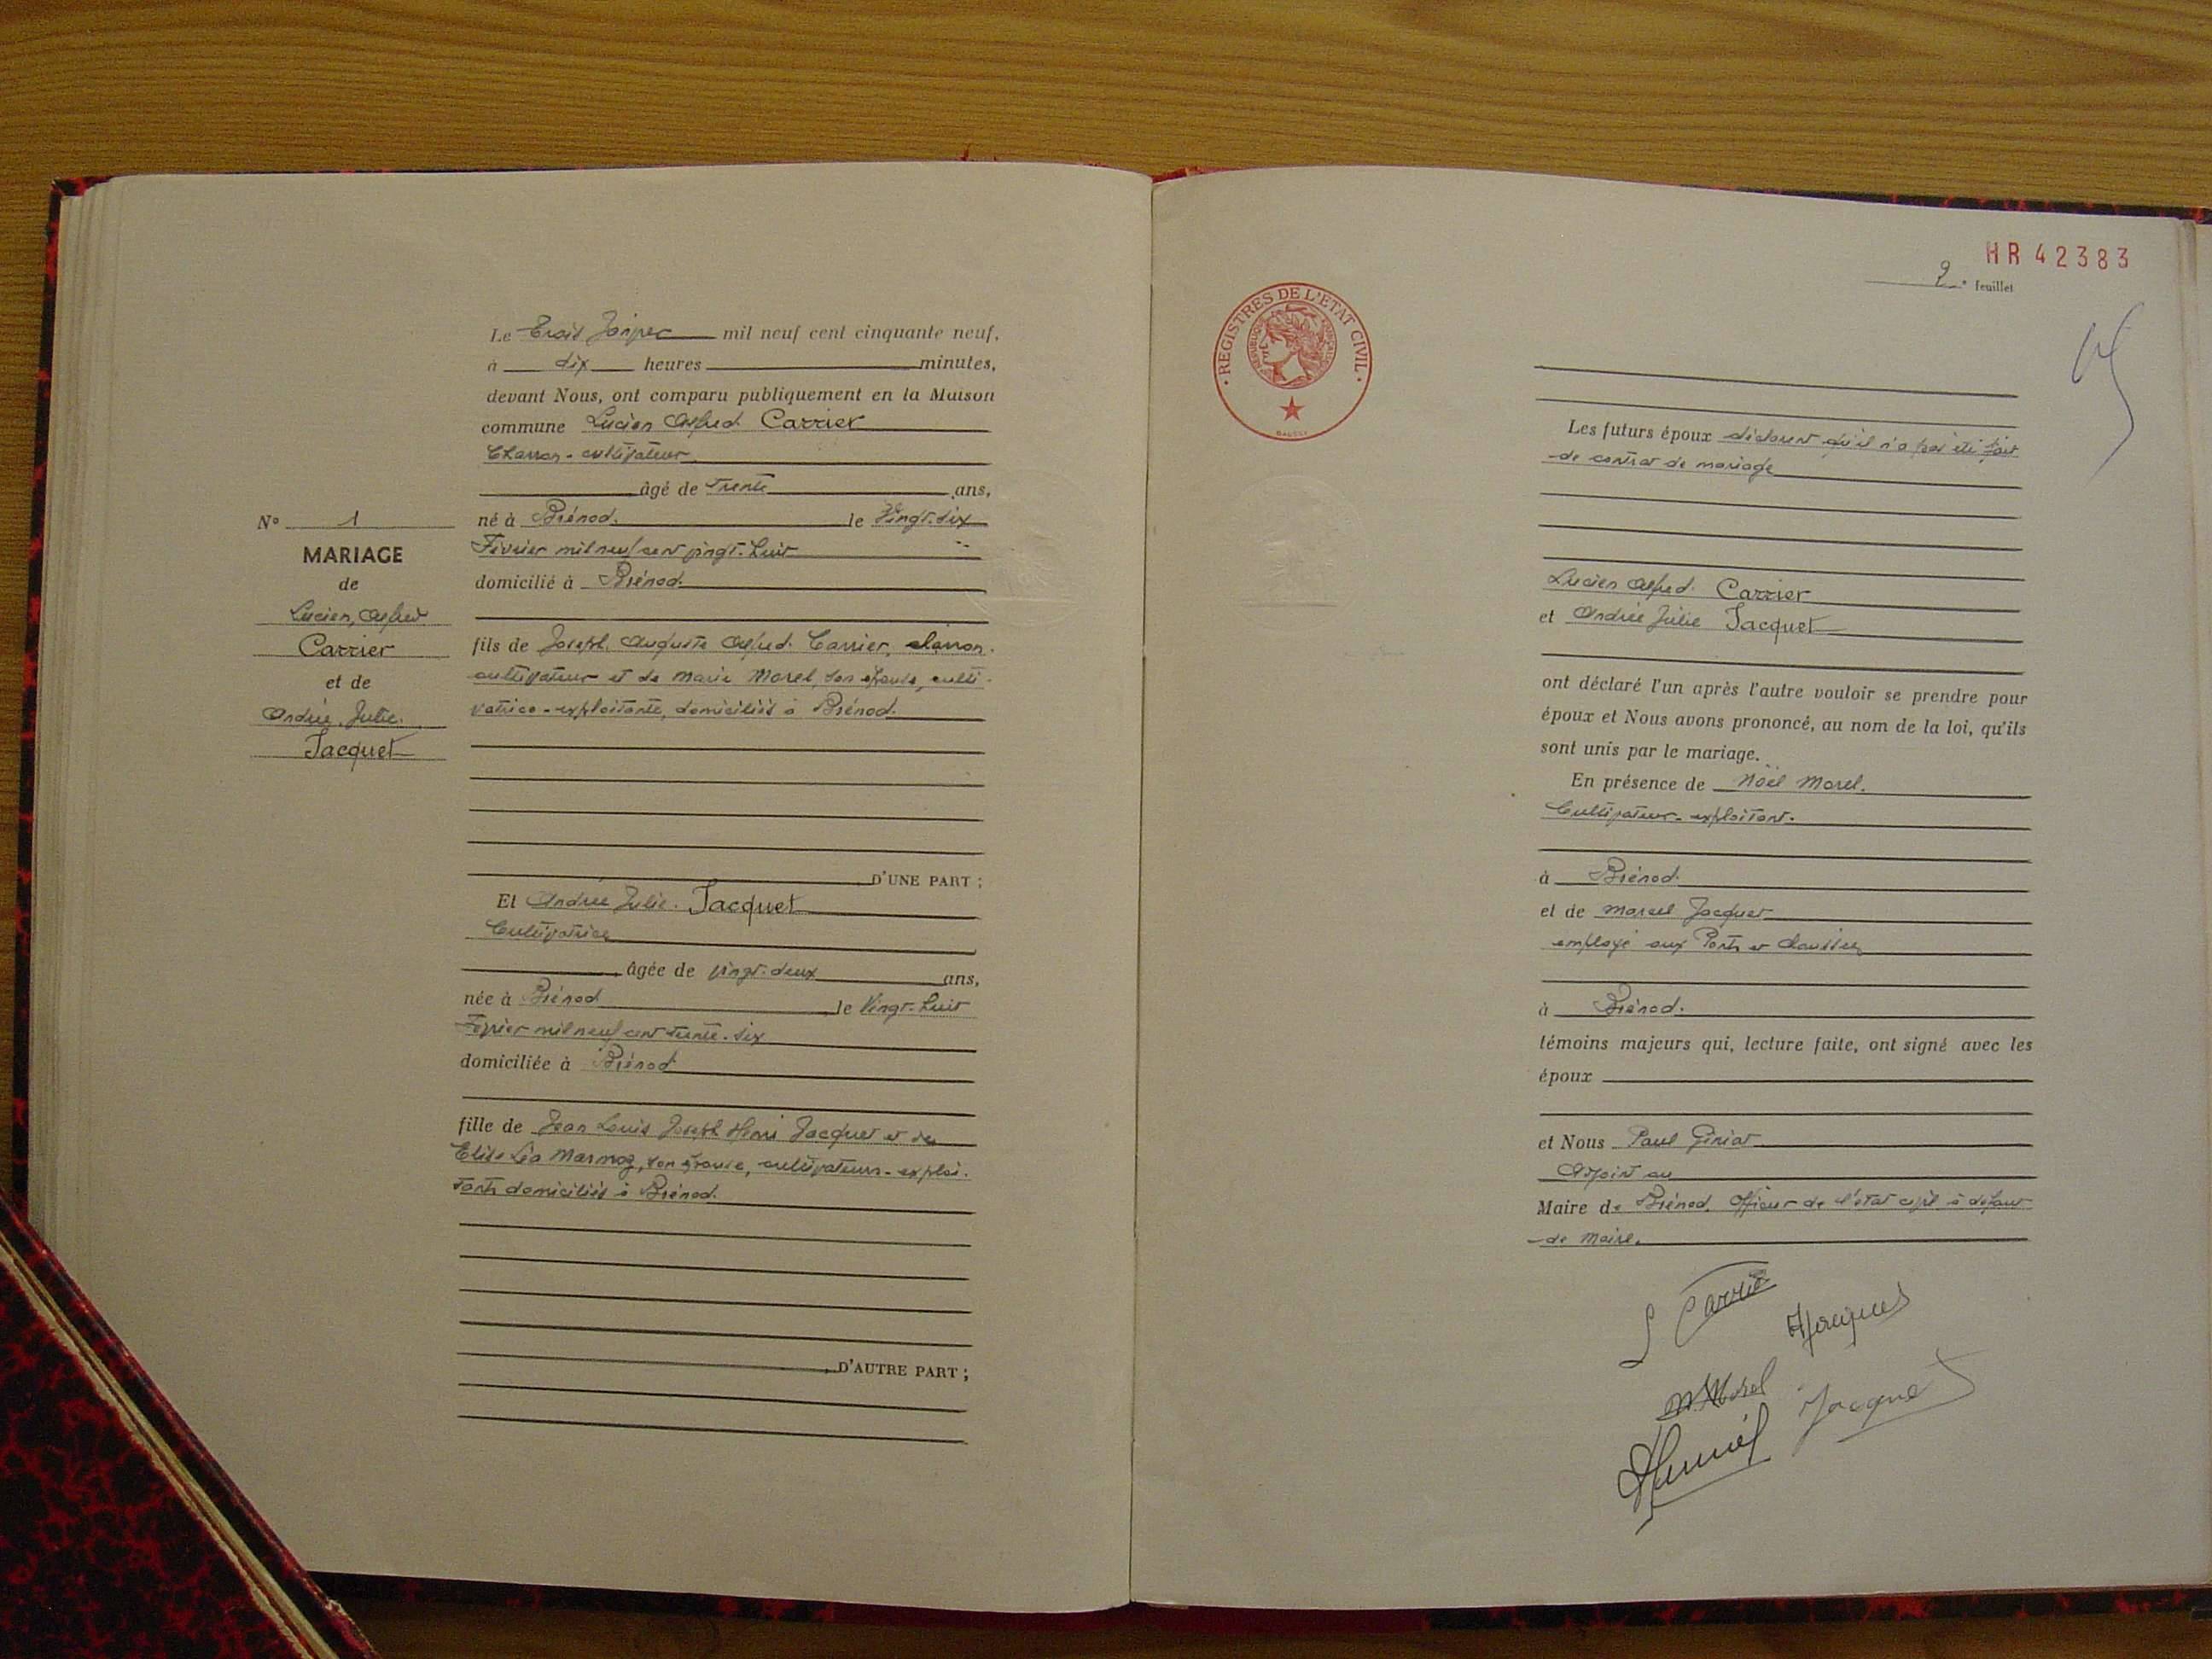 Le Trois Janvier mil neuf cent cinquante neuf,
à dix heures minutes,
devant Nous, ont comparu publiquement en la Maison
commune Lucien Alfred Carrier
Charron - cultivateur
âgé de Trente ans,
né à Brénod. le Vingt-six
Février mil neuf cent vingt-huit
domicilié à Brénod.
fils de Joseph Auguste Alfred Carrier, charron-
cultivateur et de Marie Morel, son épouse, culti-
vatrice - exploitante, domiciliés à Brénod.
D'UNE PART ;
N° 1
MARIAGE
de
Lucien, Alfred
Carrier
et de
Andrée, Julie.
Jacquet
Et Andrée Julie. Jacquet
Cultivatrice
âgée de vingt-deux ans,
née à Brénod le Vingt-huit
Février mil neuf cent trente-six
domiciliée à Brénod
fille de Jean Louis Joseph Henri Jacquet et de
Elise Léa Marmoz, son épouse, cultivateurs - exploi-
tants domiciliés à Brénod.
D'AUTRE PART ;
HR 42383
2e feuillet
REGISTRES DE L'ETAT CIVIL
REPUBLIQUE FRANÇAISE
Les futurs époux déclarent qu'il n'a pas été fait
de contrat de mariage
Lucien Alfred. Carrier
et Andrée Julie Jacquet
ont déclaré l'un après l'autre vouloir se prendre pour
époux et Nous avons prononcé, au nom de la loi, qu'ils
sont unis par le mariage.
En présence de Noël Morel.
Cultivateur - exploitant.
à Brénod.
et de Marcel Jacquet
employé aux Ponts et Chaussées
à Brénod.
témoins majeurs qui, lecture faite, ont signé avec les
époux
et Nous Paul Géniat
Adjoint au
Maire de Brénod. Officier de l'état civil à défaut
de Maire.
L Carrier
AJacquet
N. Morel
Jacquet